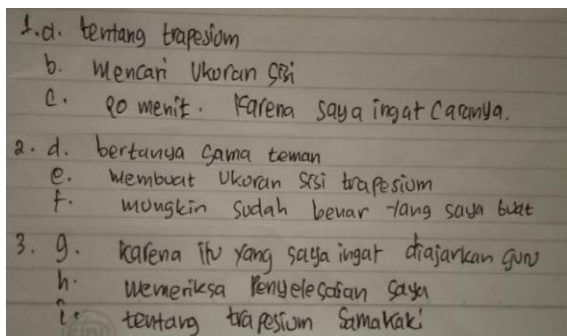 1. d. tentang trapesium
b. Mencari Ukuran sisi
c. 20 menit. Karena saya ingat Caranya.
2. d. bertanya sama teman
e. Membuat Ukuran sisi trapesium
f. mungkin sudah benar yang saya buat
3. g. Karena itu yang saya ingat diajarkan guru
h. Memeriksa Penyelesaian saya
i. tentang trapesium Samakaki